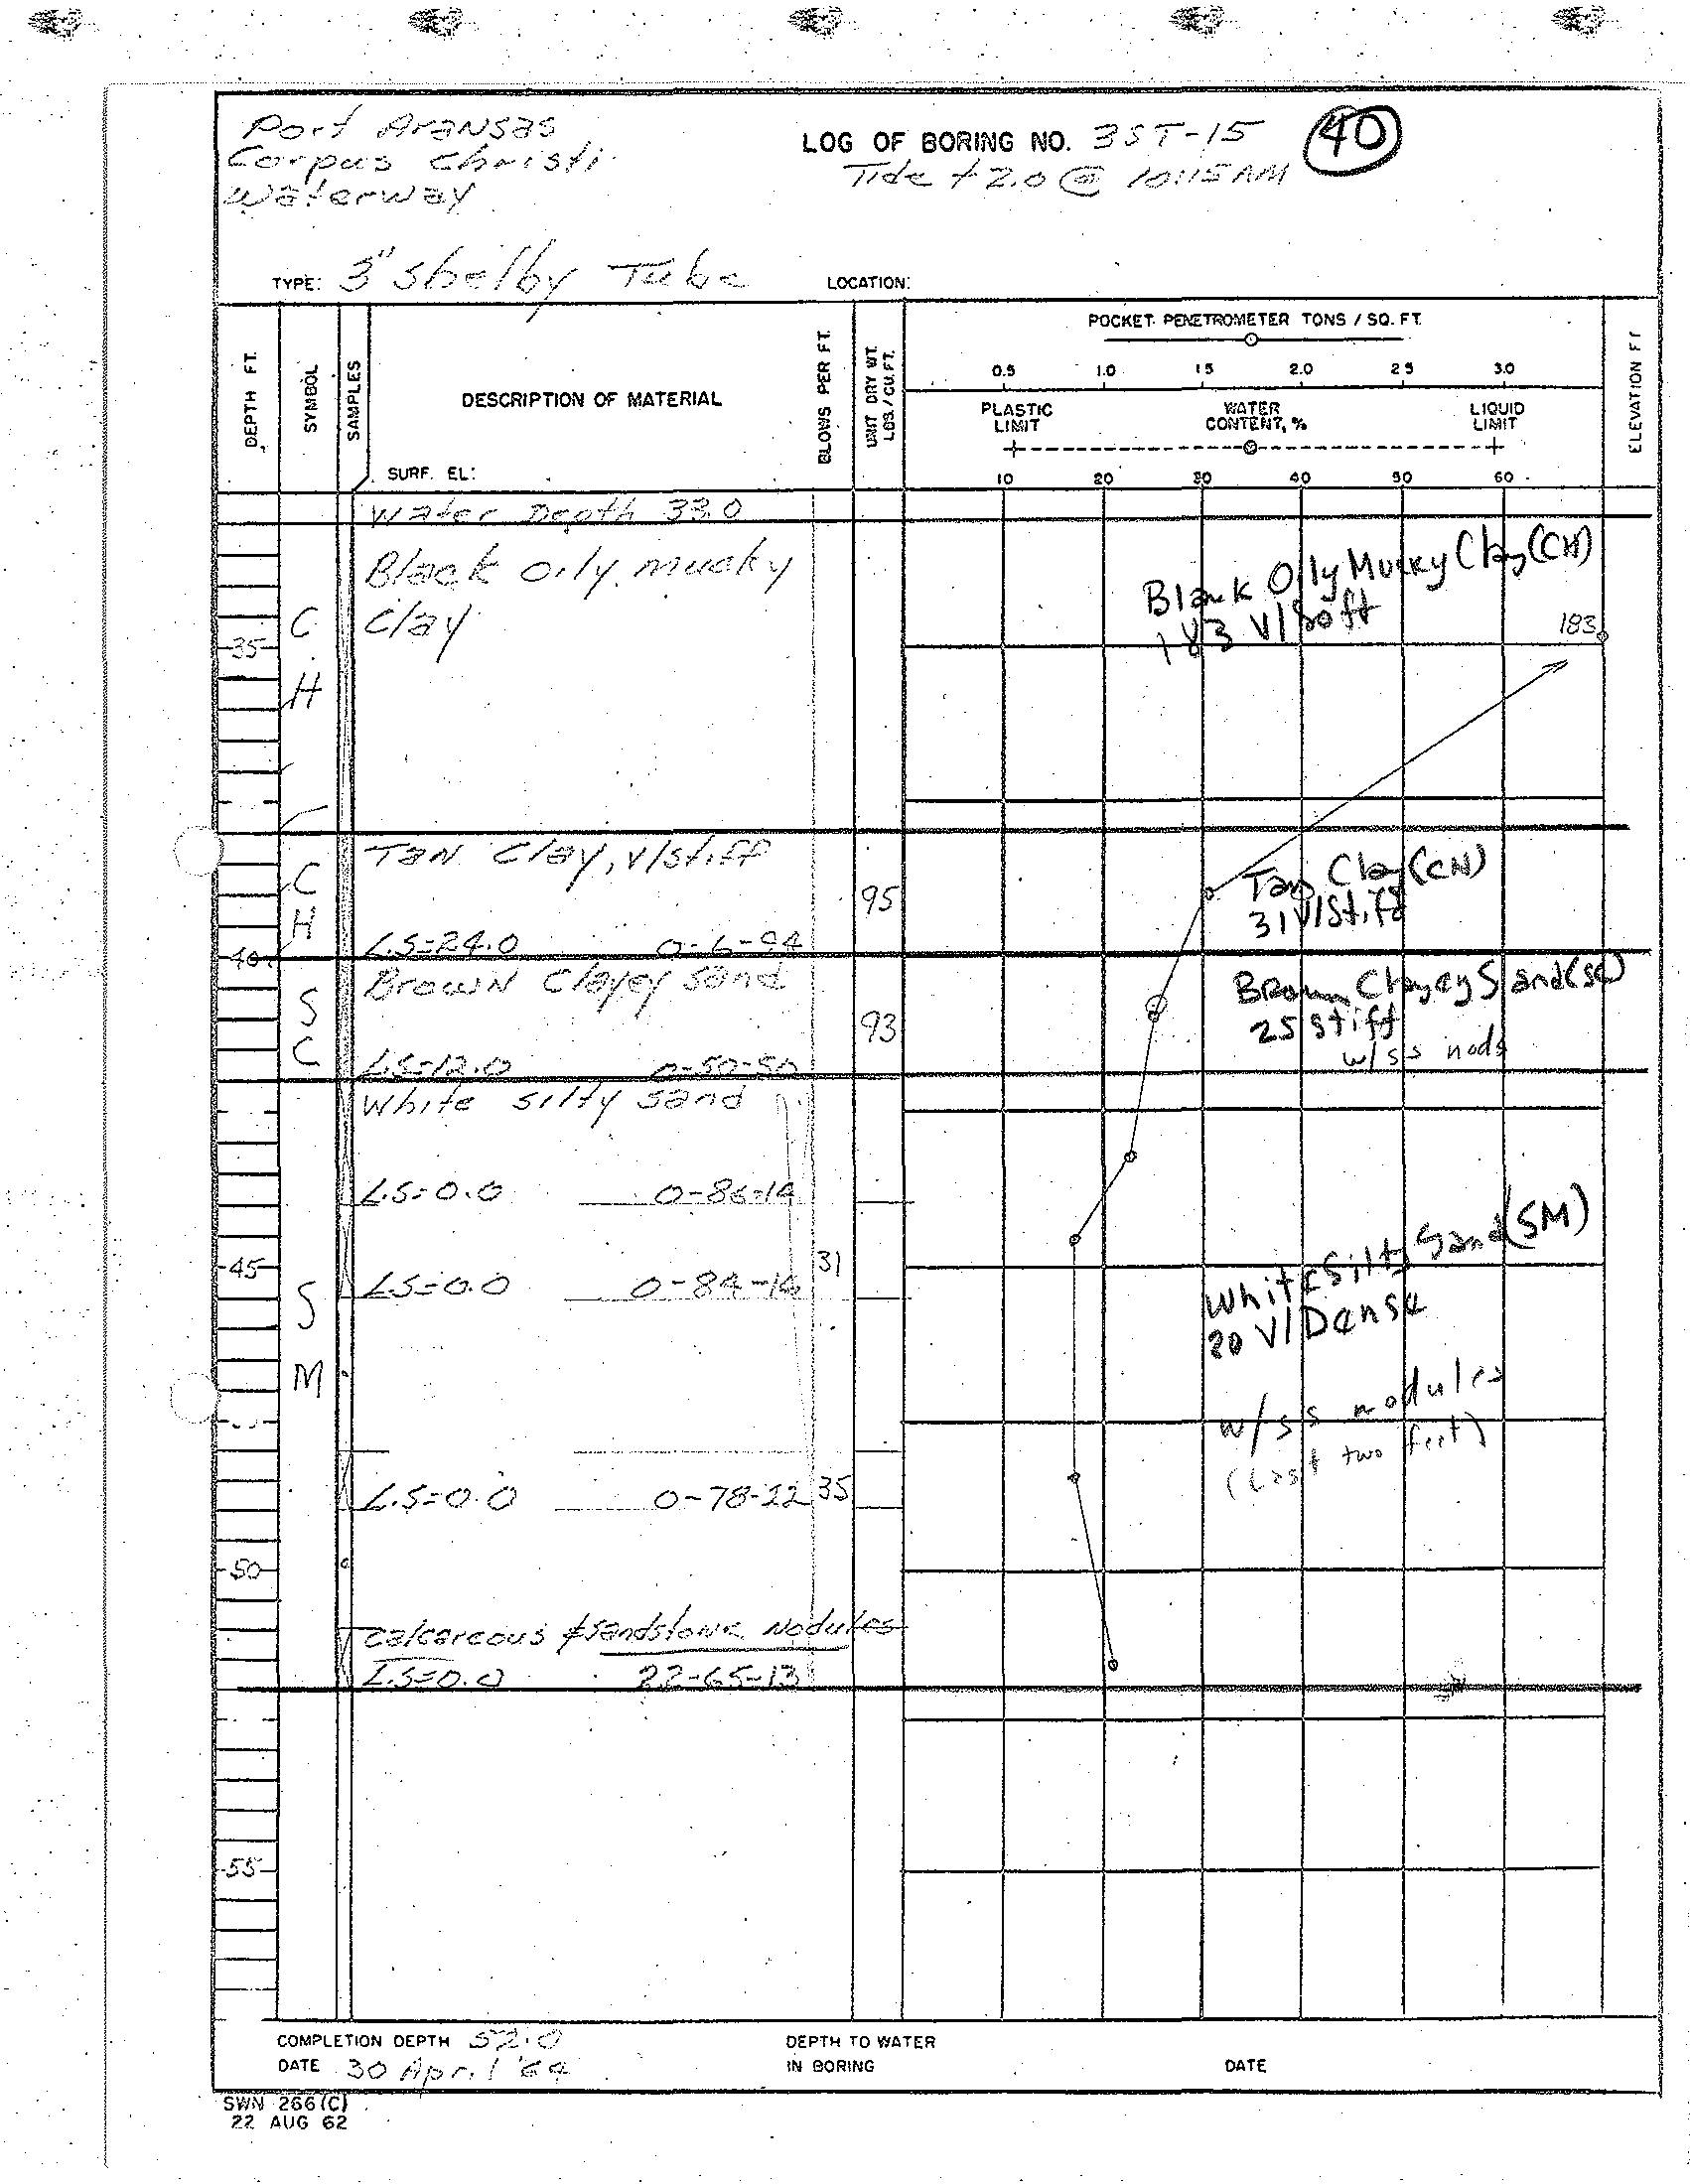 Port Aransas
Corpus Christi
Waterway
LOG OF BORING NO. 3ST-15
40
Tide + 2.0 @ 10:15 AM
TYPE: 3" Shelby Tube
LOCATION:
DEPTH FT.
SYMBOL
SAMPLES
DESCRIPTION OF MATERIAL
SURF. EL:
BLOWS PER FT.
UNIT DRY WT.
LBS./CU.FT.
POCKET PENETROMETER TONS / SQ. FT.
0.5 1.0 1.5 2.0 2.5 3.0
PLASTIC LIMIT
WATER CONTENT, %
LIQUID LIMIT
10 20 30 40 50 60
ELEVATION FT
Water Depth 33.0
Black oily mucky
clay
C
H
35
Black Oily Mucky Clay (CH)
183 V/Soft
183
Tan Clay, v/stiff
C
H
95
Tan Clay (CH)
31 V/Stiff
L.S=24.0
40
Brown Clayey Sand
S
C
93
Brown Clayey Sand (SC)
25 stiff
w/ss nods
L.S=12.0 0-50-50
White silty sand
L.S=0.0 0-86-14
45
31
L.S=0.0 0-84-16
S
M
White Silty Sand (SM)
20 V/Dense
w/ss nodules
(Last two feet)
L.S=0.0 0-78-22 35
50
Calcareous & sandstone Nodules
L.S=0.0 22-65-13
55
COMPLETION DEPTH 52.0
DATE 30 April '64
DEPTH TO WATER
IN BORING
DATE
SWN 266(C)
22 AUG 62